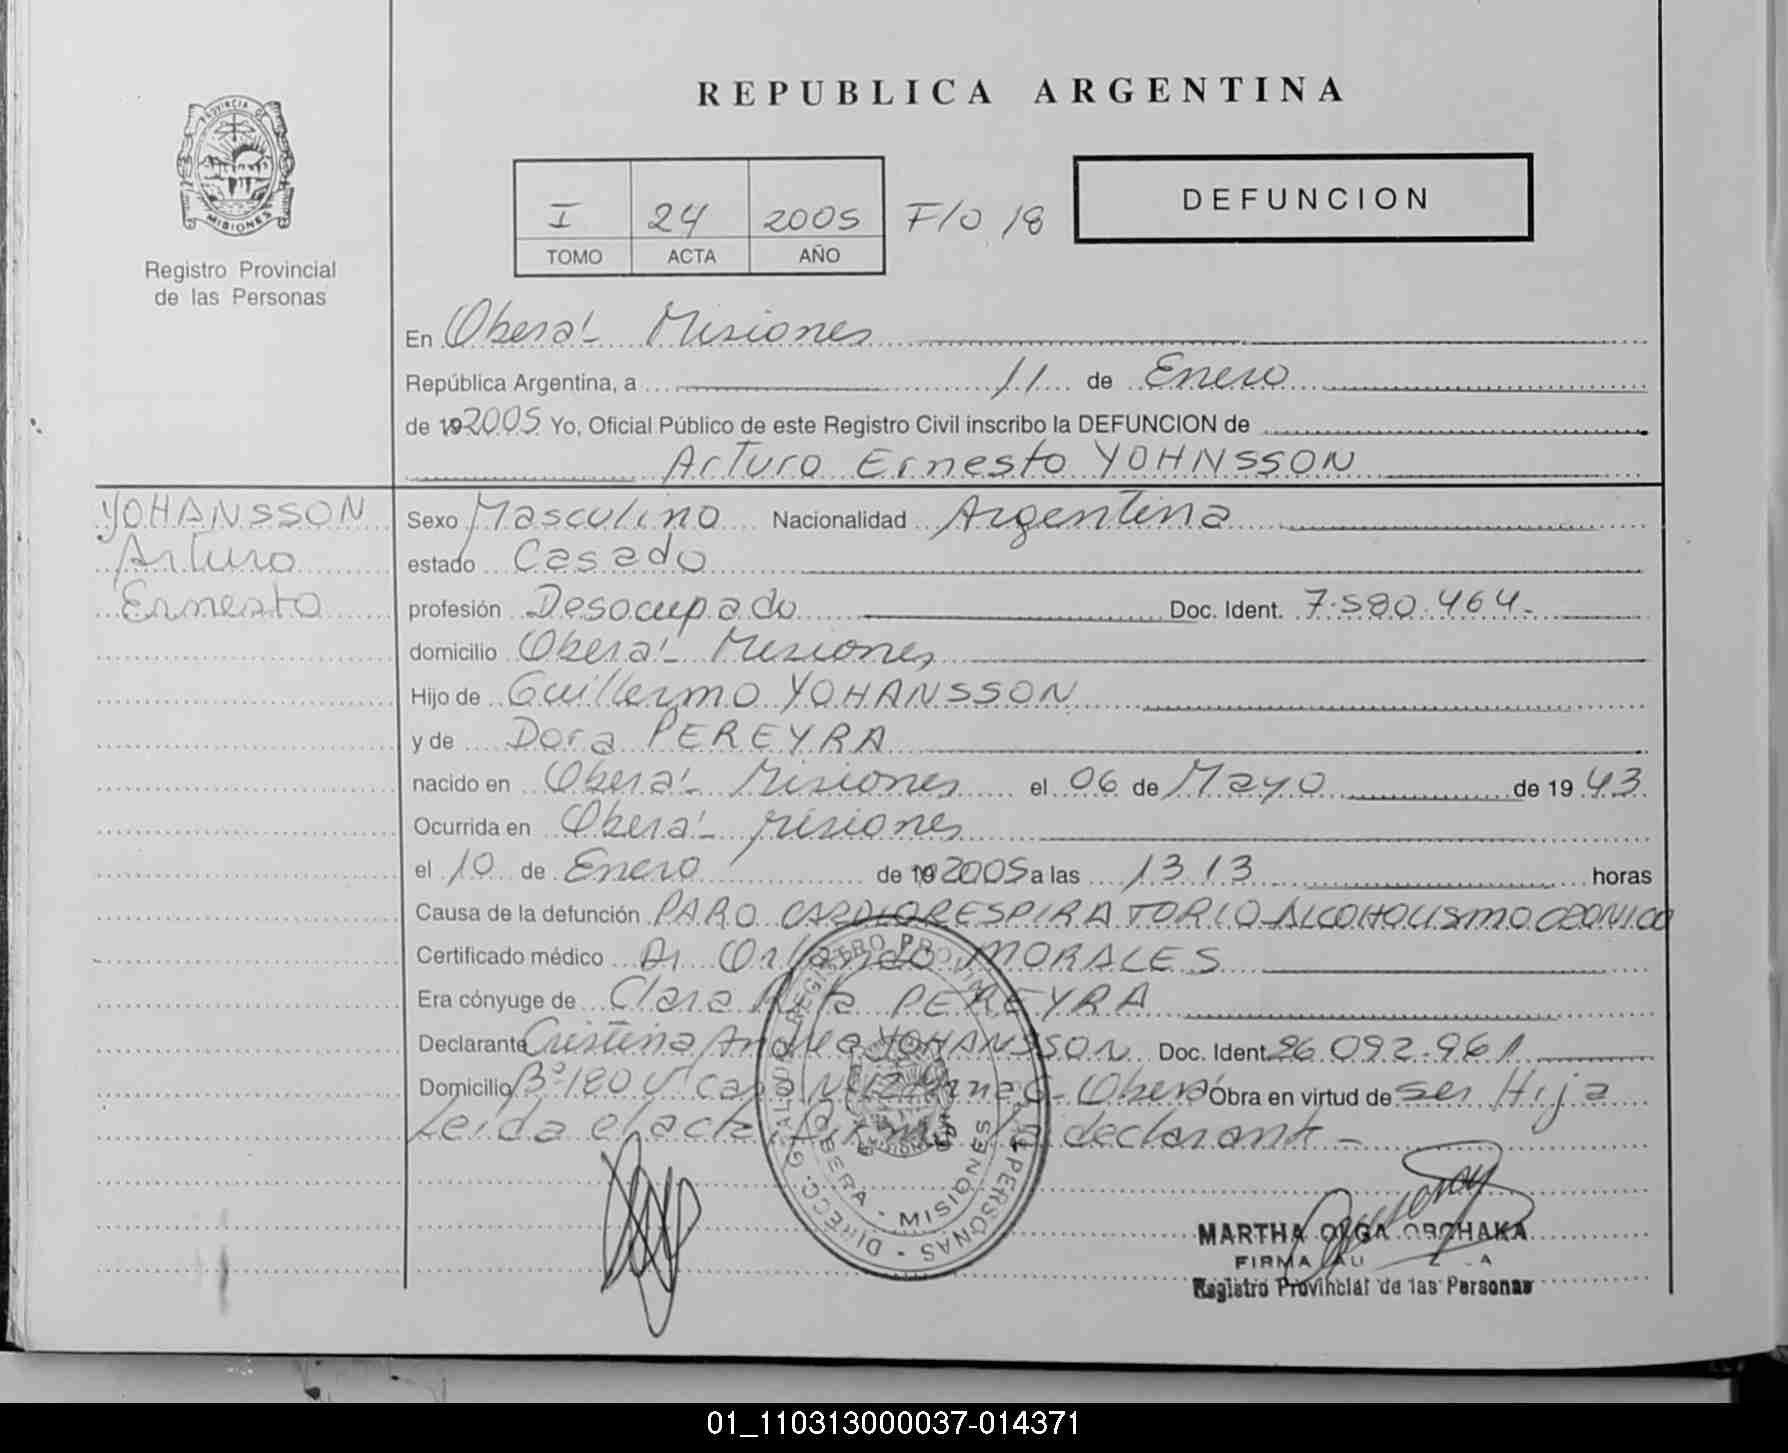 REPUBLICA ARGENTINA
PROVINCIA DE
MISIONES
Registro Provincial
de las Personas
I 24 2005 F/o 18
TOMO ACTA AÑO
DEFUNCION
En Oberá - Misiones
República Argentina, a 11 de Enero
de 19 2005 Yo, Oficial Público de este Registro Civil inscribo la DEFUNCION de
Arturo Ernesto YOHNSSON
YOHANSSON
Arturo
Ernesto
Sexo Masculino Nacionalidad Argentina
estado Casado
profesión Desocupado Doc. Ident. 7.580.464.-
domicilio Oberá - Misiones
Hijo de Guillermo YOHANSSON
y de Dora PEREYRA
nacido en Oberá - Misiones el 06 de Mayo de 19 43
Ocurrida en Oberá - Misiones
el 10 de Enero de 19 2005 a las 13.13 horas
Causa de la defunción PARO CARDIORESPIRATORIO - ALCOHOLISMO CRONICO
Certificado médico Dr Orlando MORALES
Era cónyuge de Clara Rita PEREYRA
Declarante Cristina Andrea YOHANSSON Doc. Ident. 26.092.961
Domicilio Bº 180 Vº Casa - Oberá Obra en virtud de ser Hija
Leida el acta, firma la declarante -
OBERA - MISIONES
MARTHA OLGA OBCHAKA
FIRMA
Registro Provincial de las Personas
01_110313000037-014371